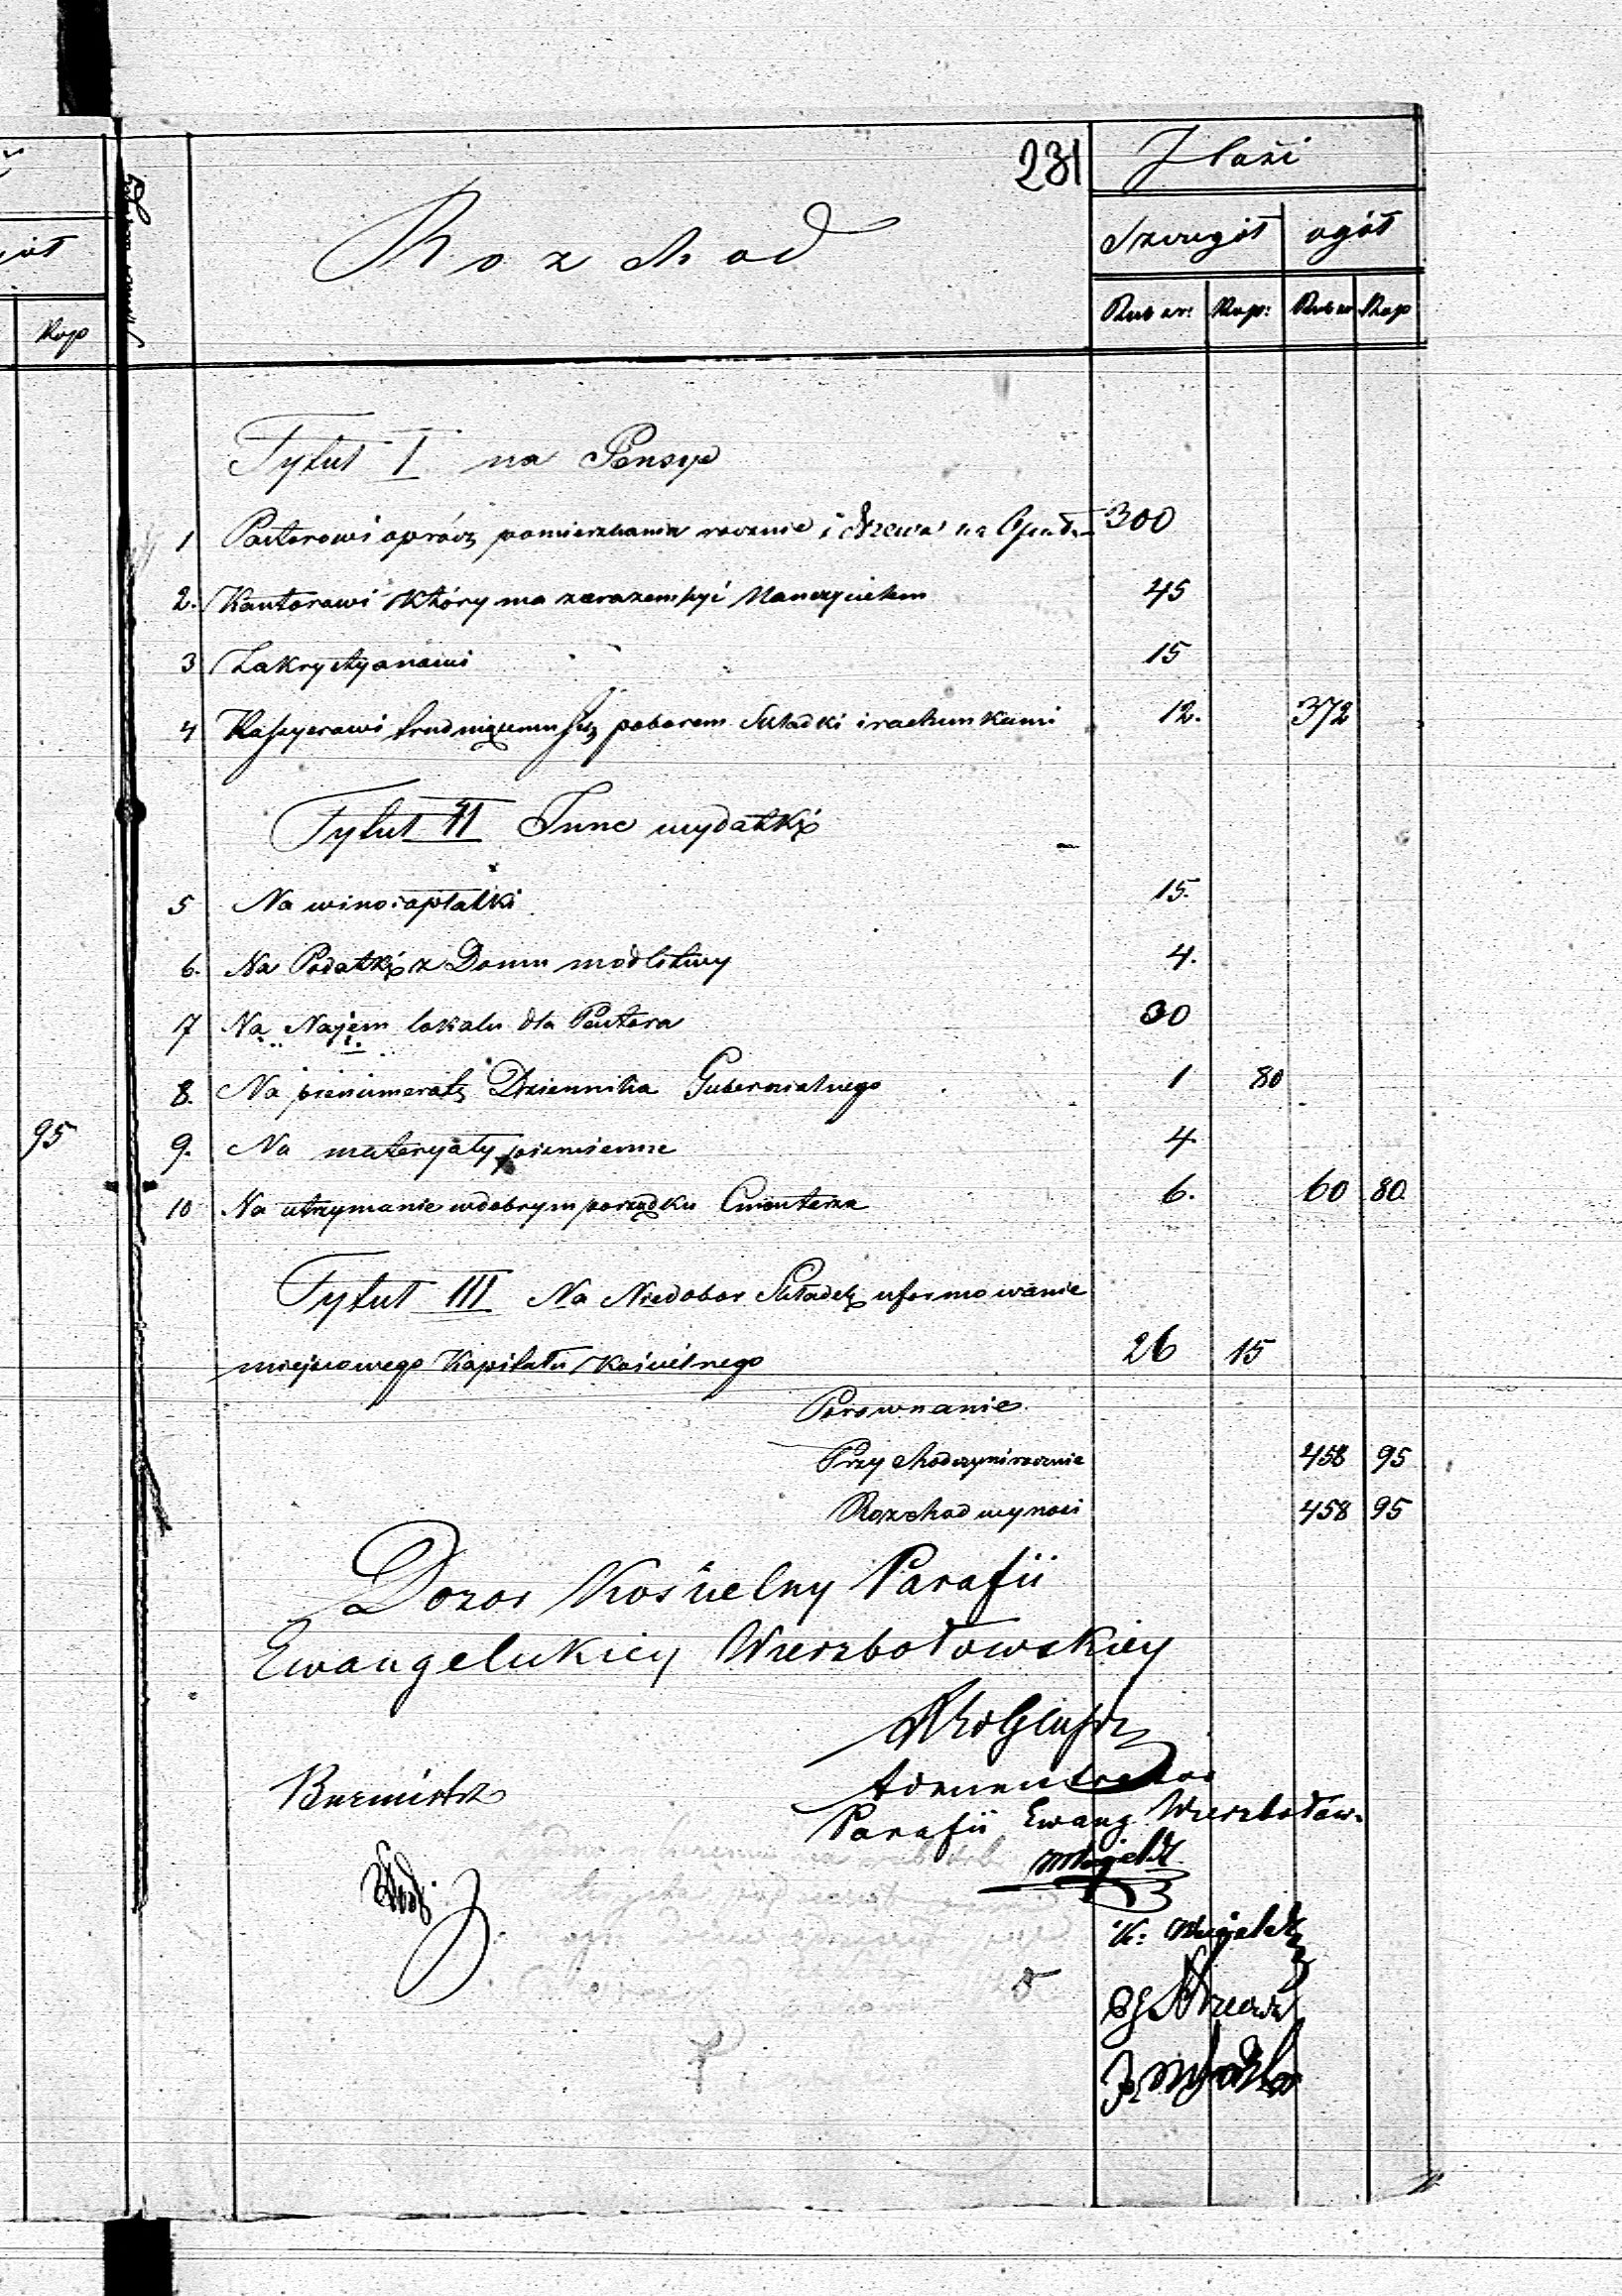 231
Ilość
Rozchod
Szczegół ogół
Rub sr: Kop: Rub sr Kop
Kop
Tytuł I na Pensye
1 Pastorowi oprócz pomieszkania rocznie i drzewa na Opał 300
2. Kantorowi który ma zarazem być Nauczycielem 45
3 Zakrystyanowi 15
4 Kassyerowi trudniącemu się poborem Składki i rachunkami 12. 372
Tytuł II Inne wydatki
5 Na wino i opłatki 15.
6. Na Podatki z Domu modlitwy 4.
7 Na Najem lokalu dla Pastora 30
8. Na prenumeratę Dziennika Gubernialnego 1 80
95
9. Na materyały piśmienne 4.
10 Na utrzymanie w dobrym porządku Cmentarza 6. 60 80
Tytuł III Na Niedobor Składek uformowanie
miejscowego Kapitału Kościelnego 26 15
Porownanie
Przychod czyni rocznie 458 95
Rozchod wynosi 458 95
Dozor Kościelny Parafii
Ewangelickiey Wierzbołowskiey
Administrator
Burmistrz
Parafii Ewang Wierzbołow.
K.